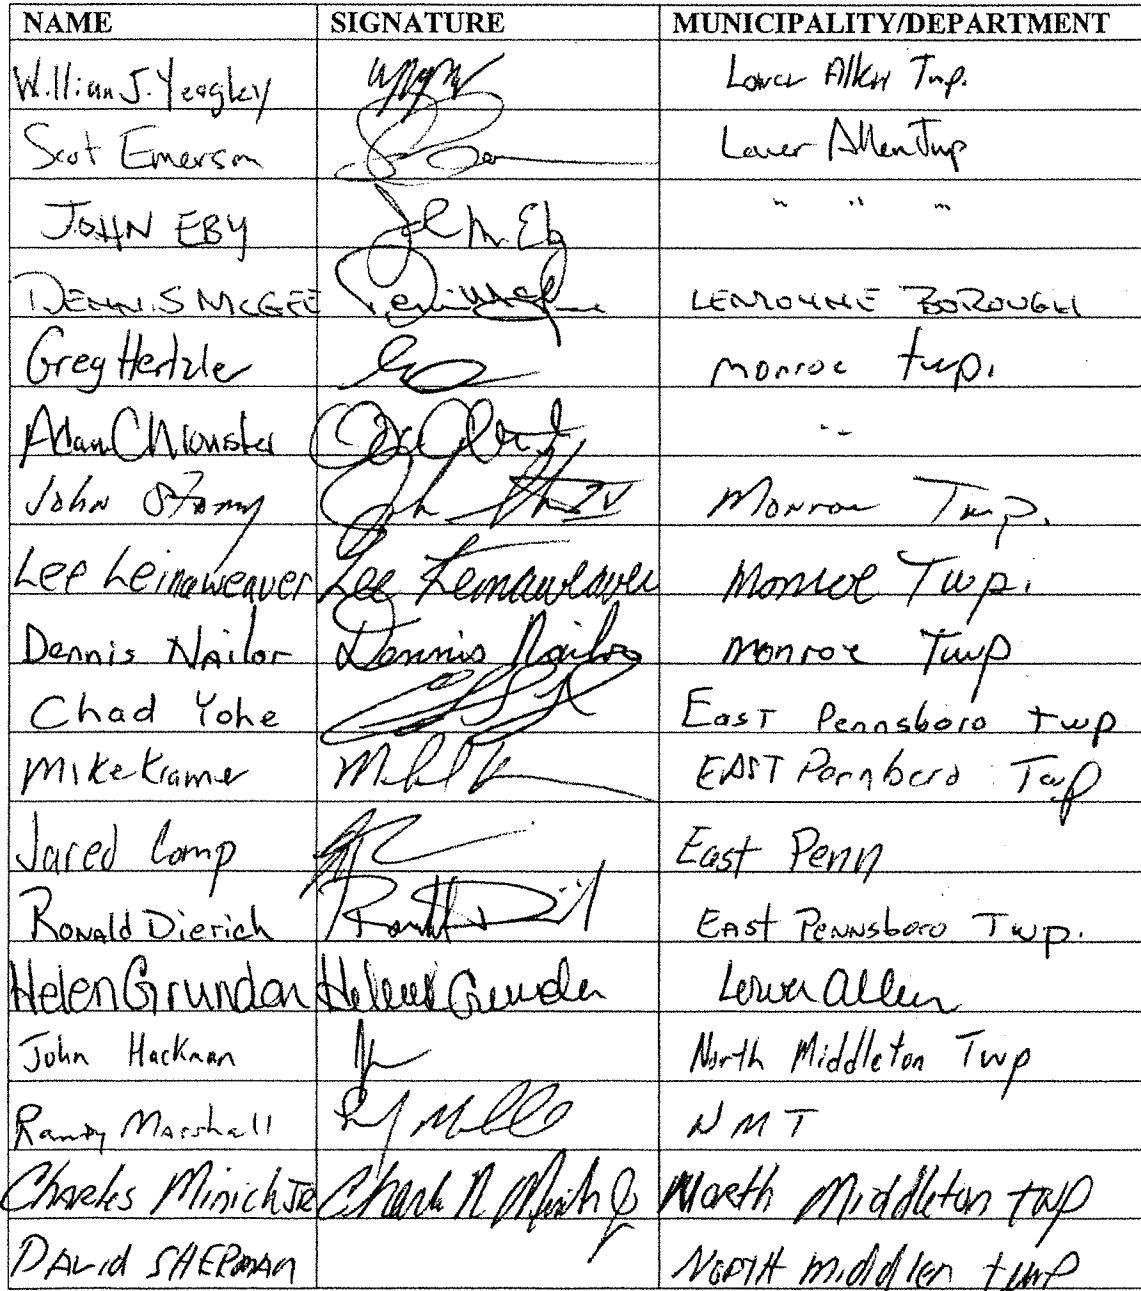 NAME SIGNATURE MUNICIPALITY/DEPARTMENT
William J. Yeagley Lower Allen Twp.
Scot Emerson Lower Allen Twp
JOHN EBY J M. Eby " " "
DENNIS MCGEE LEMOYNE BOROUGH
Greg Hertzler monroe twp.
Adam " "
John Monroe Twp.
Lee Leinaweaver Lee Leinaweaver Monroe Twp.
Dennis Nailor Dennis Nailor monroe Twp
Chad Yohe East Pennsboro twp
Mike Kramer EAST Pennboro Twp
Jared Comp East Penn
Ronald Dierich East Pennsboro Twp.
Helen Grundon Helen Grundon Lower Allen
John Hackman North Middleton Twp
Randy Marshall NMT
Charles Minich JR Charles N Minich Jr North Middleton twp
DAVid SHERMAN NORTH middleton twp